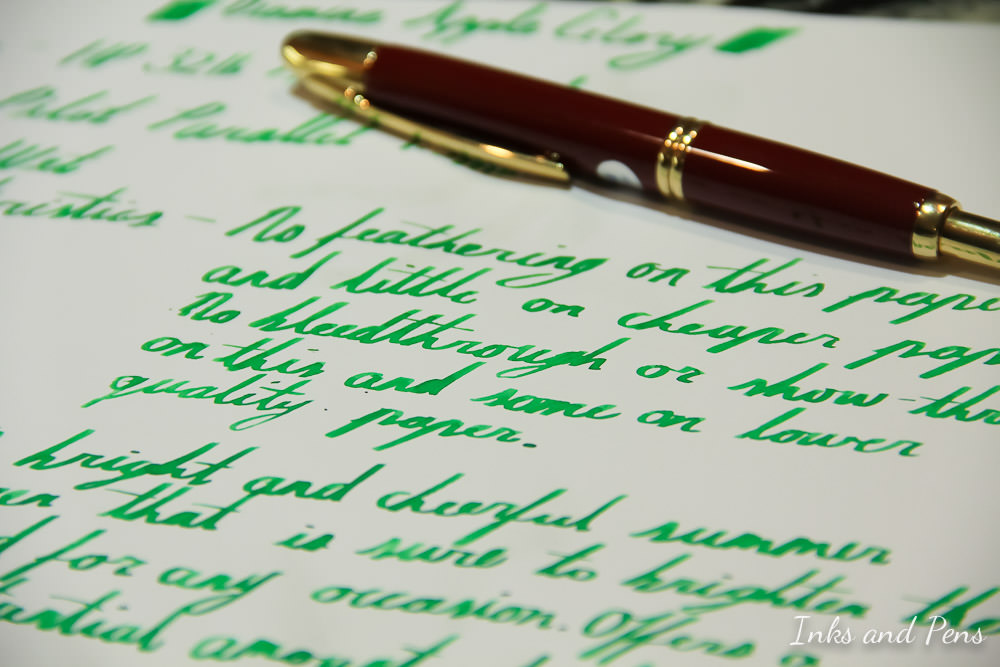 Diamine Apple Glory
HP 32lb
Pilot Parallel
Wet
ristics - No feathering on this pape
and little on cheaper pap
No bleedthrough or show-thr
on this and some on lower
quality paper.
bright and cheerful summer
een that is sure to brighten th
d for any occasion. Offers a
tantial amount
Inks and Pens